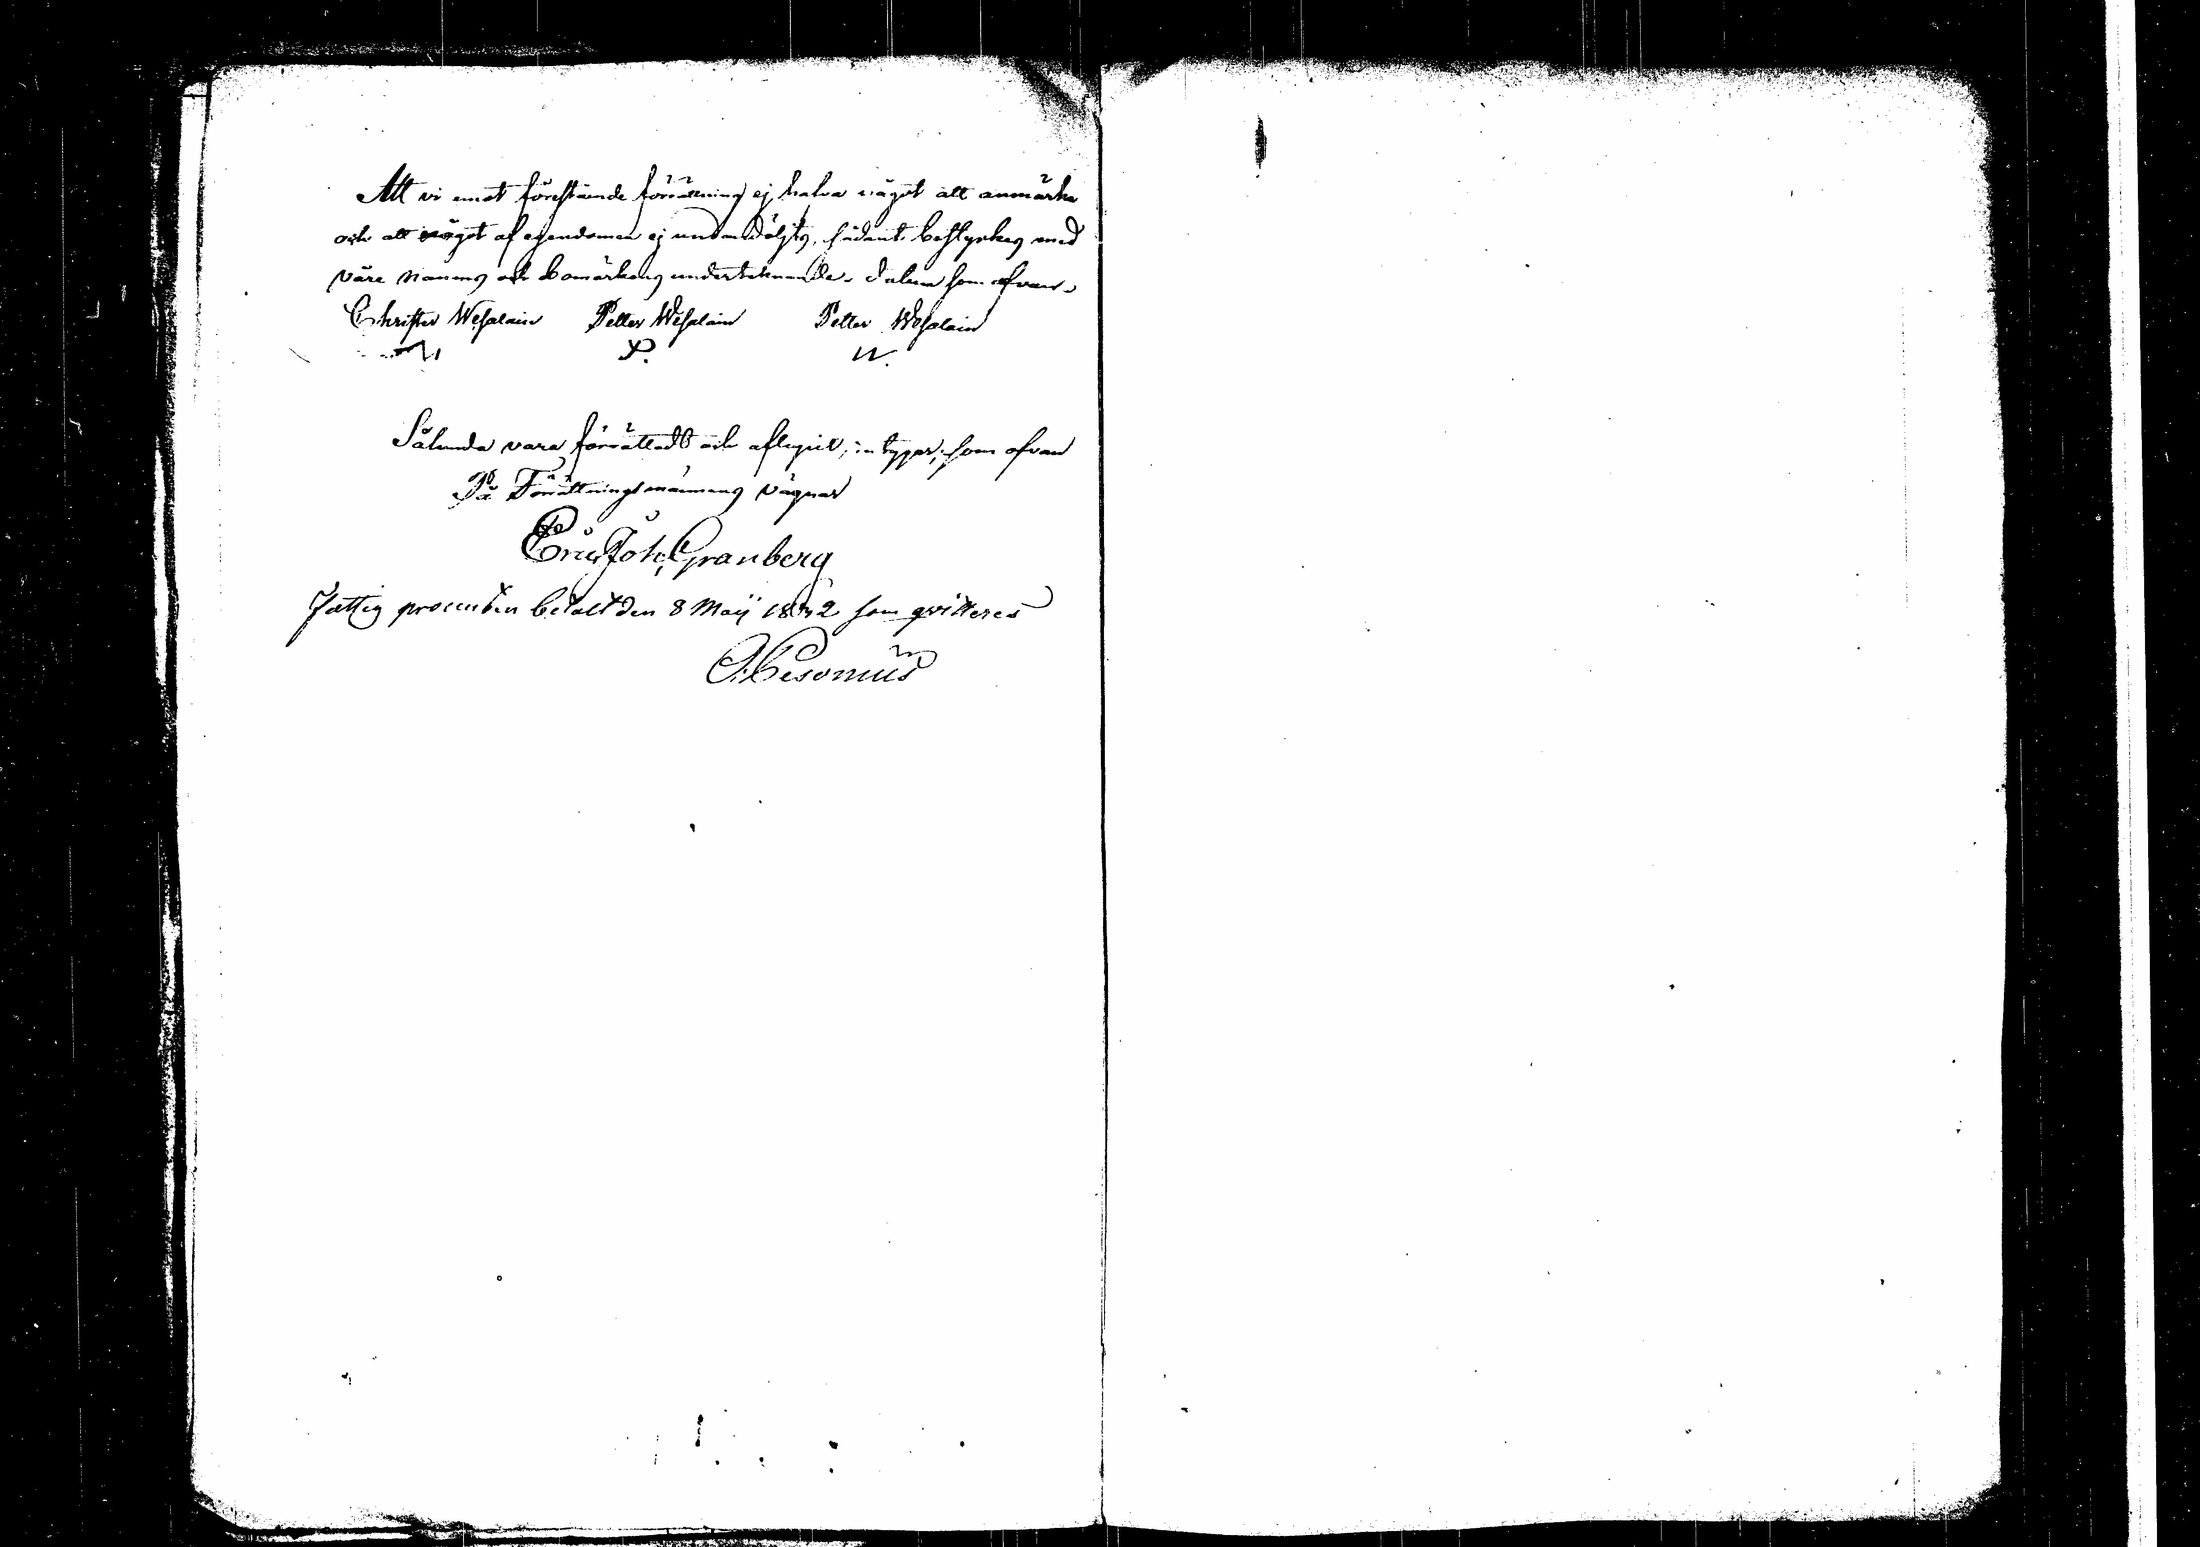 Att vi emot förestående förrättning ej hafva något att anmärka
och att något af egendomen ej undandöljts, sådant bestyrkes med
våre namns och bomärkens undertecknande. Datum som ofvan.
Christer Wesalain Petter Wesalain Petter Wesalain
P. W.
Sålunda vara förrättadt och aflupit, intygar, som ofvan
På Förrättningsmännens vägnar
Eric Joh, Granberg
Fattig procenten betalt den 8 Maij 1842 som qvitteres